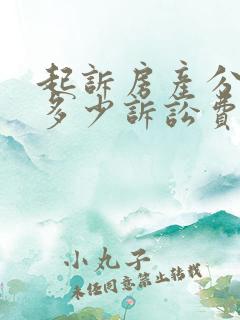 起訴房產分
多少訴訟費
小丸子
未经同意禁止转载